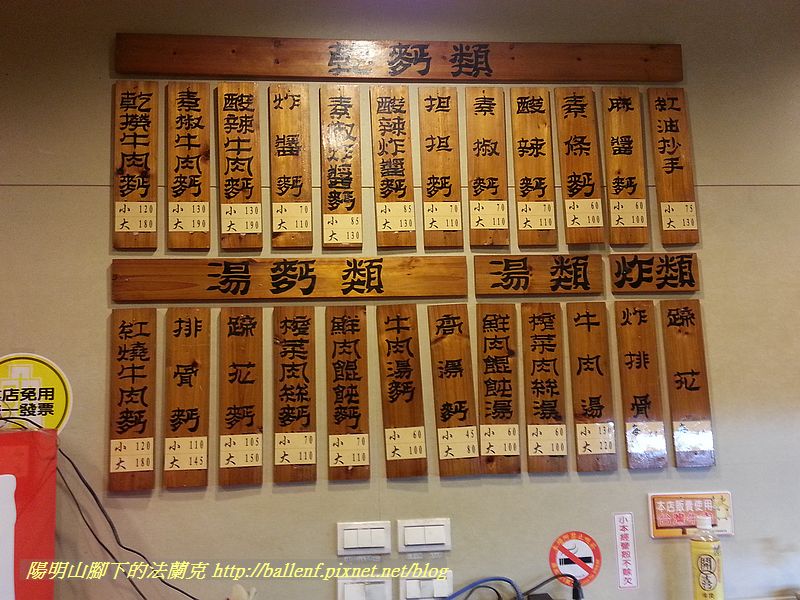 乾麵類
乾撈牛肉麵 小 120 大 180
素椒牛肉麵 小 130 大 190
酸辣牛肉麵 小 130 大 190
炸醬麵 小 70 大 110
素椒炸醬麵 小 85 大 130
酸辣炸醬麵 小 85 大 130
担担麵 小 70 大 110
素椒麵 小 70 大 110
酸辣麵 小 70 大 110
素條麵 小 60 大 100
麻醬麵 小 60 大 100
紅油抄手 小 75 大 130
湯麵類
湯類
炸類
紅燒牛肉麵 小 120 大 180
排骨麵 小 110 大 145
蹄花麵 小 105 大 150
榨菜肉絲麵 小 70 大 110
鮮肉餛飩麵 小 70 大 110
牛肉湯麵 小 60 大 100
高湯麵 小 45 大 80
鮮肉餛飩湯 小 60 大 100
榨菜肉絲湯 小 60 大 100
牛肉湯 小 130 大 220
炸排骨
蹄花
本店免用
統一發票
本店販賣使用
小本經營恕不賒欠
陽明山腳下的法蘭克 http://ballenf.pixnet.net/blog